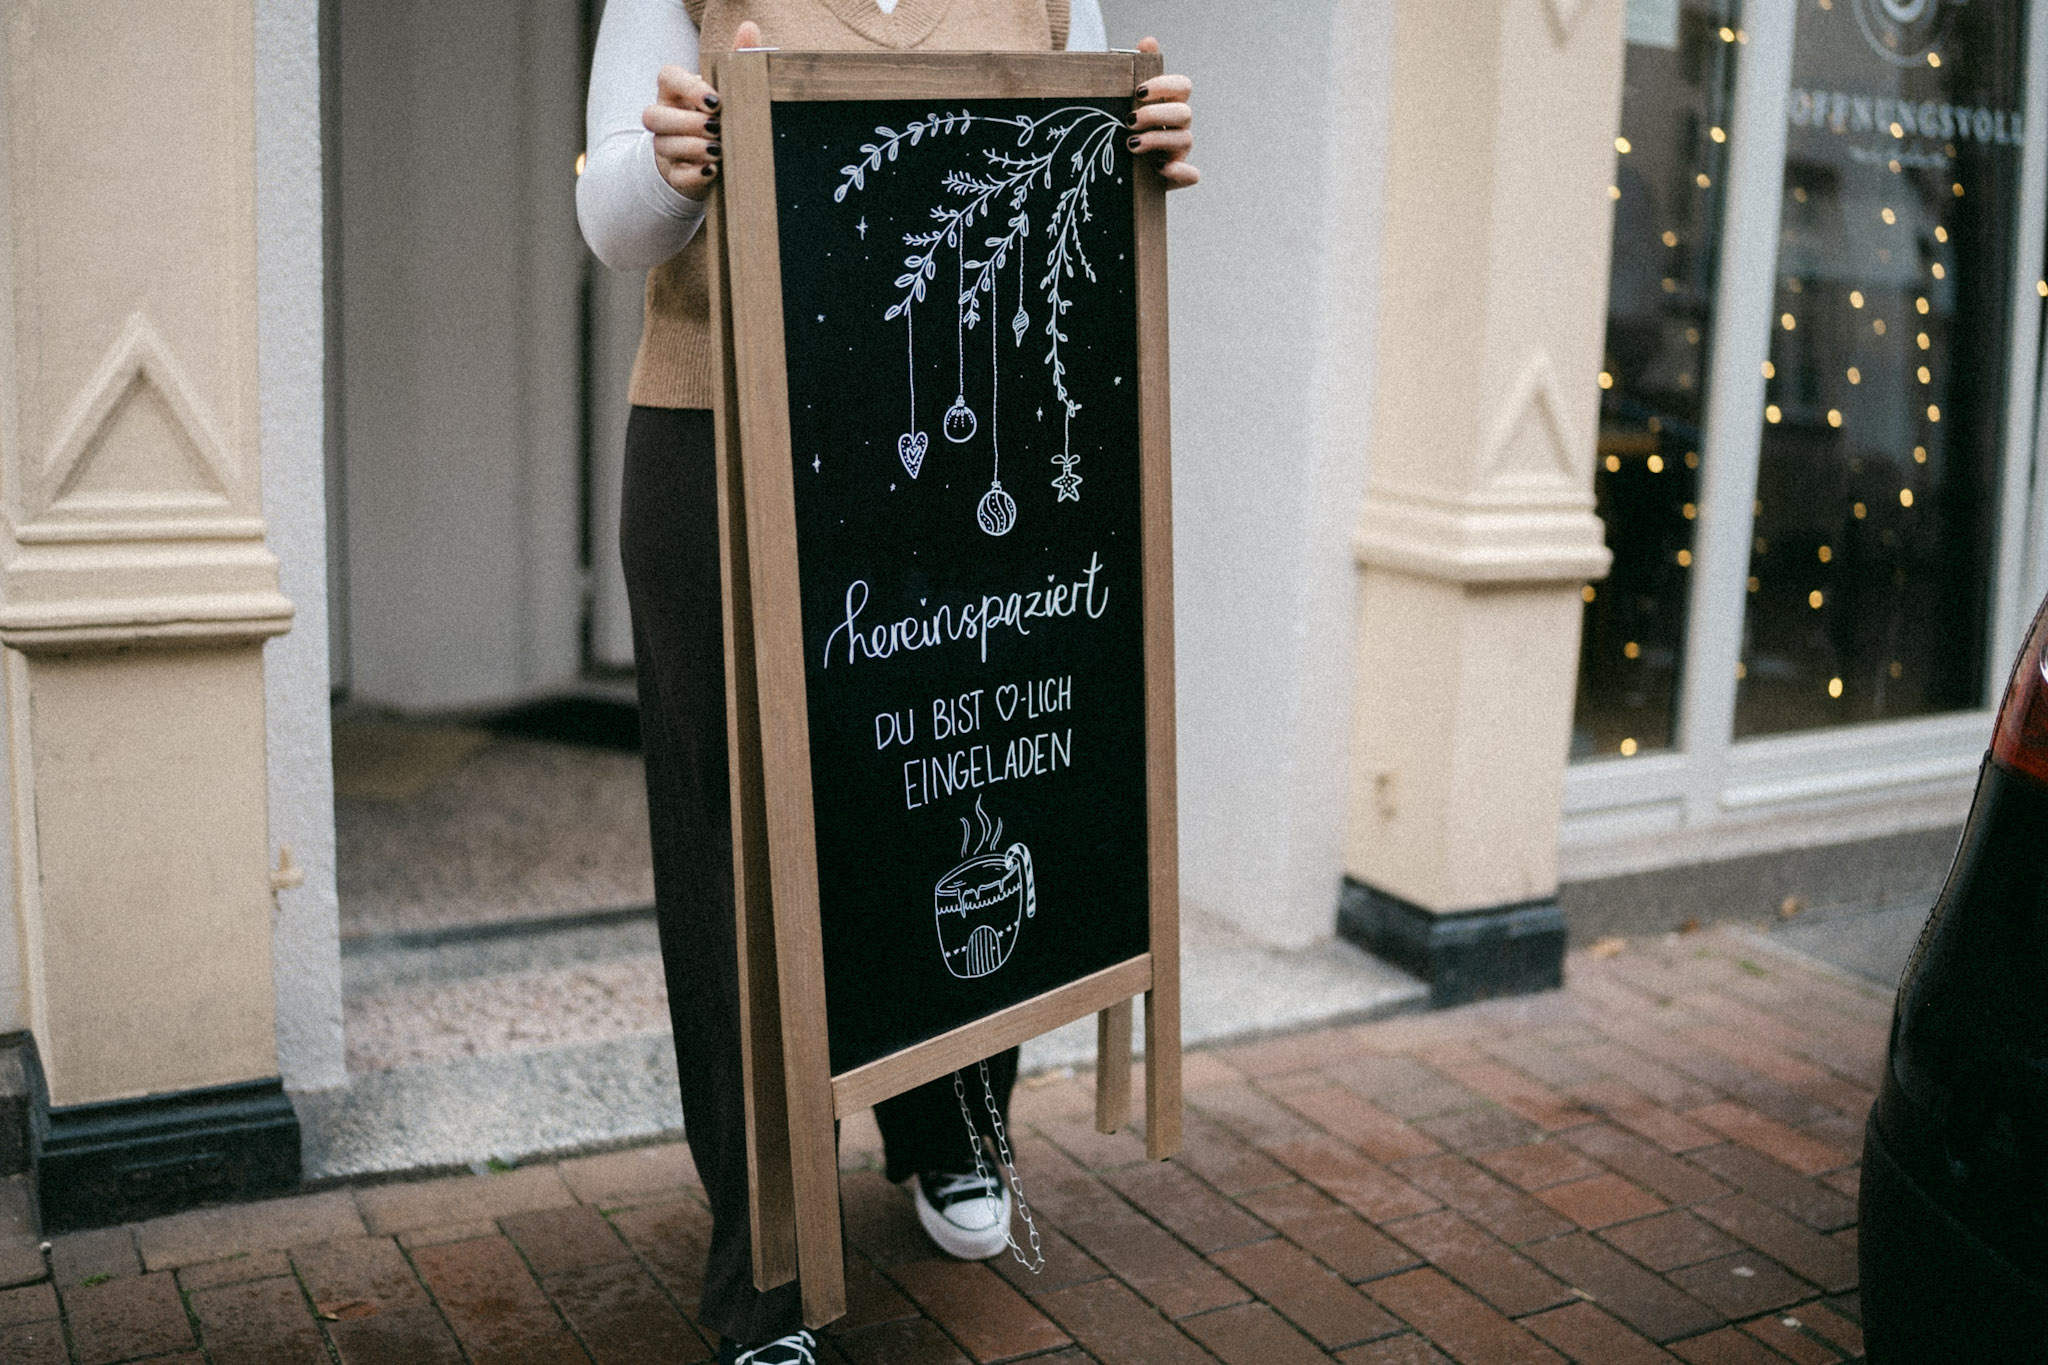 hereinspaziert
DU BIST ♡-LICH
EINGELADEN
HOFFNUNGSVOLL